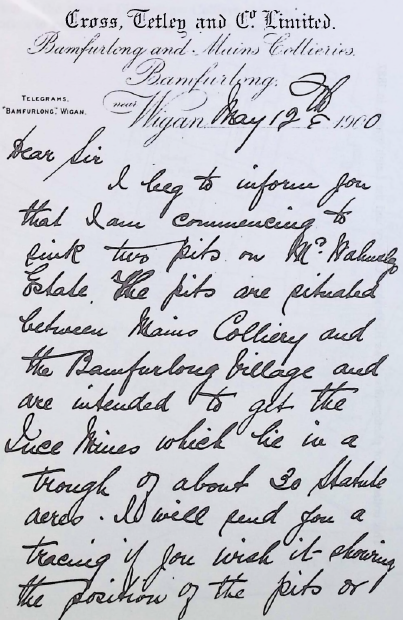 Cross, Tetley and Co. Limited.
Bamfurlong and Mains Collieries.
Bamfurlong,
TELEGRAMS,
"BAMFURLONG," WIGAN.
near
Wigan May 12th 1900
Dear Sir
I beg to inform you
that I am commencing to
sink two pits on Mr. Walmesley
Estate. The pits are situated
between Mains Colliery and
the Bamfurlong Village and
are intended to get the
Ince Mines which lie in a
trough of about 30 Statute
acres. I will send you a
tracing if you wish it showing
the position of the pits or